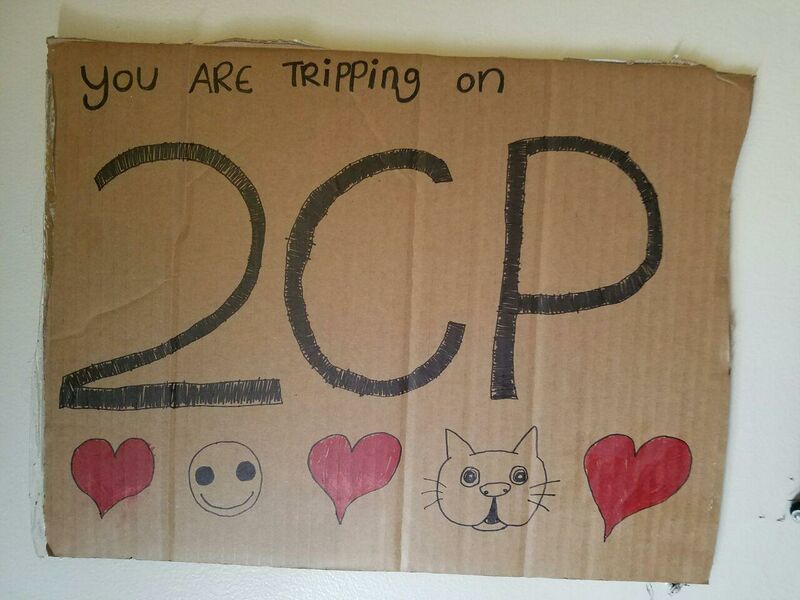 you ARE TRIPPing on
2CP